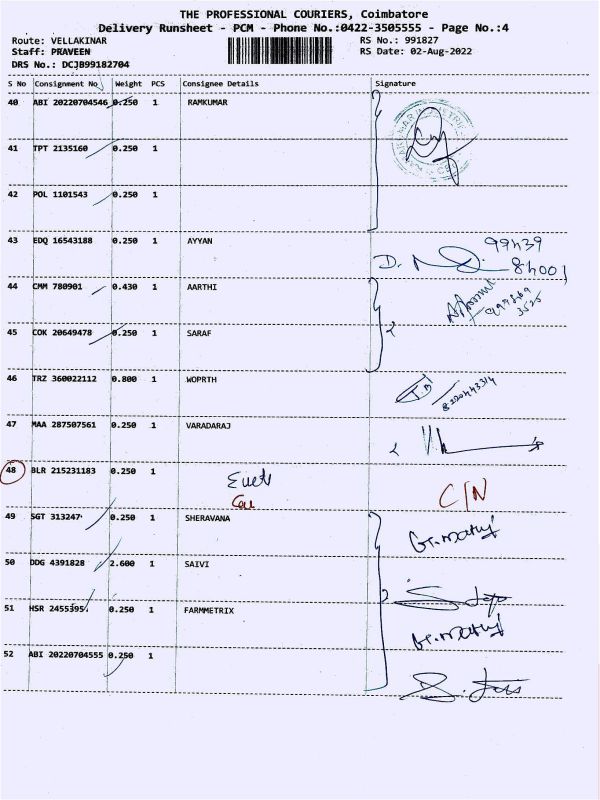 THE PROFESSIONAL COURIERS, Coimbatore
Delivery Runsheet - PCM - Phone No.:0422-3505555 - Page No.:4
Route: VELLAKINAR RS No.: 991827
Staff: PRAVEEN RS Date: 02-Aug-2022
DRS No.: DCJB99182704
S No Consignment No Weight PCS Consignee Details Signature
40 ABI 20220704546 0.250 1 RAMKUMAR
41 TPT 2135160 0.250 1
42 POL 1101543 0.250 1
43 EDQ 16543188 0.250 1 AYYAN D. 99439
84001
44 CMM 780901 0.430 1 AARTHI
45 COK 20649478 0.250 1 SARAF
46 TRZ 360022112 0.800 1 WOPRTH
47 MAA 287507561 0.250 1 VARADARAJ
48 BLR 215231183 0.250 1 C/N
49 SGT 313247 0.250 1 SHERAVANA
50 DDG 4391828 2.600 1 SAIVI
51 HSR 2455395 0.250 1 FARMMETRIX
52 ABI 20220704555 0.250 1